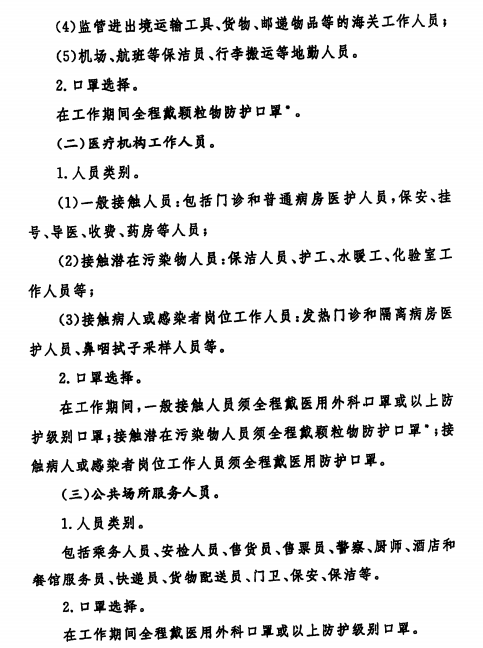 (4)监管进出境运输工具、货物、邮递物品等的海关工作人员;
(5)机场、航班等保洁员、行李搬运等地勤人员。
2.口罩选择。
在工作期间全程戴颗粒物防护口罩*。
(二)医疗机构工作人员。
1.人员类别。
(1)一般接触人员:包括门诊和普通病房医护人员,保安、挂
号、导医、收费、药房等人员;
(2)接触潜在污染物人员:保洁人员、护工、水暖工、化验室工
作人员等;
(3)接触病人或感染者岗位工作人员:发热门诊和隔离病房医
护人员、鼻咽拭子采样人员等。
2.口罩选择。
在工作期间,一般接触人员须全程戴医用外科口罩或以上防
护级别口罩;接触潜在污染物人员须全程戴颗粒物防护口罩*;接
触病人或感染者岗位工作人员须全程戴医用防护口罩。
(三)公共场所服务人员。
1.人员类别。
包括乘务人员、安检人员、售货员、售票员、警察、厨师、酒店和
餐馆服务员、快递员、货物配送员、门卫、保安、保洁等。
2.口罩选择。
在工作期间全程戴医用外科口罩或以上防护级别口罩。